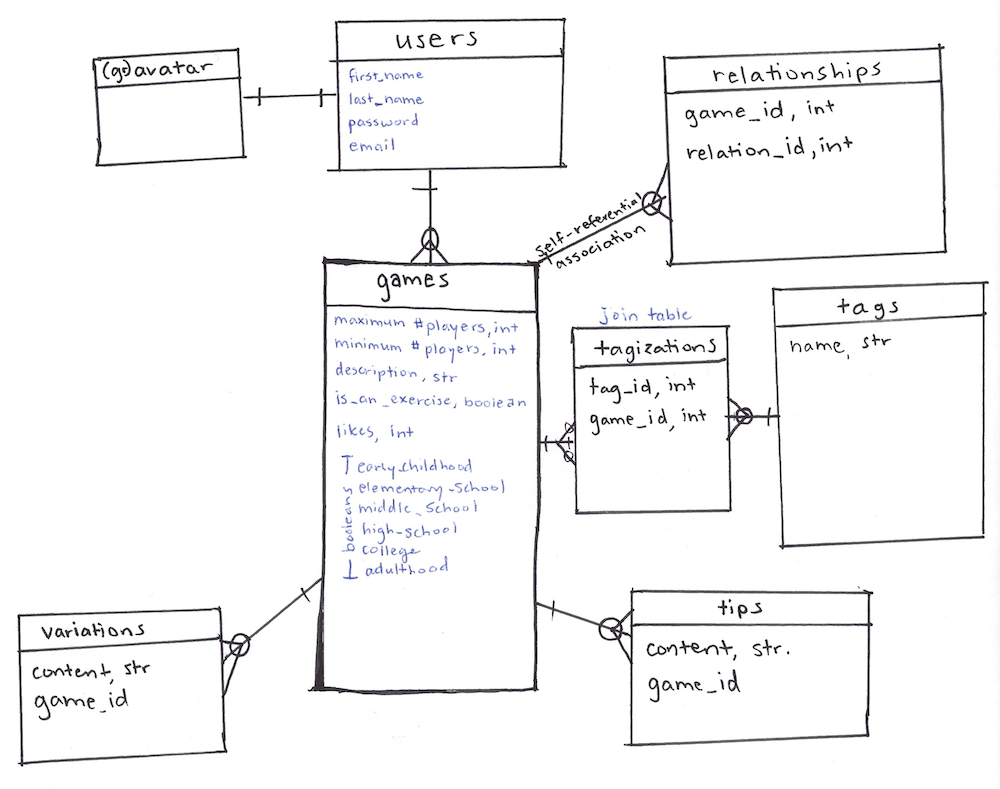 (gr)avatar
users
first_name
last_name
password
email
relationships
game_id, int
relation_id, int
self-referential
association
games
maximum # players, int
minimum # players, int
description, str
is_an_exercise, boolean
likes, int
booleans
early_childhood
elementary_school
middle_school
high-school
college
adulthood
join table
tagizations
tag_id, int
game_id, int
tags
name, str
variations
content, str
game_id
tips
content, str.
game_id